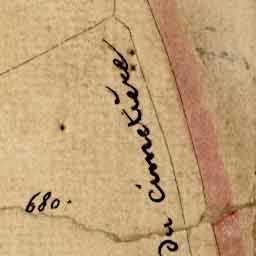 Du Cimetière
680.